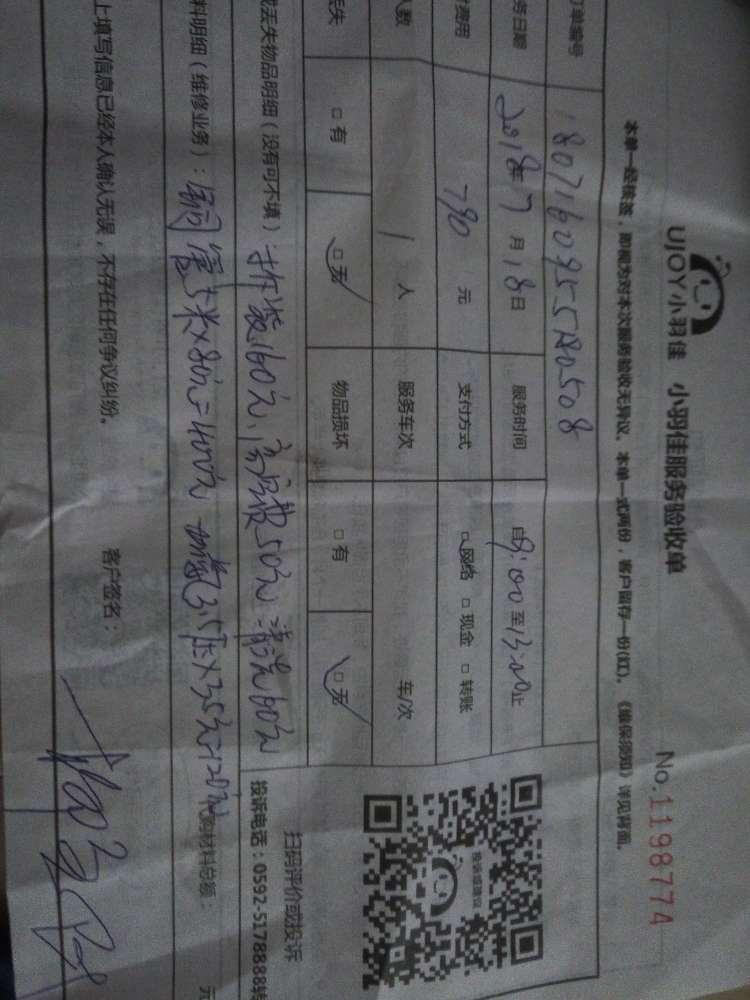 UJOY小羽佳 小羽佳服务验收单
No.1198774
本单一经核签，即视为对本次服务验收无异议。本单一式两份，客户留存一份(红)。《维保须知》详见背面。
订单编号
务日期 2018年7月18日 服务时间 自9:00至13:00止
费用 790 元 支付方式 □网络 □现金 □转账
人数 1 人 服务车次 车/次
丢失 □有 □无 物品损坏 □有 □无
投诉或建议
扫码评价或投诉
投诉电话：0592-5178888转
或丢失物品明细（没有可不填） 拆装160元，高空费50元，清洗60元
料明细（维修业务）： 铜管5米×80元=400元 加氟3.5压×35元=120元 购材料总额： 元
上填写信息已经本人确认无误，不存在任何争议纠纷。 客户签名：